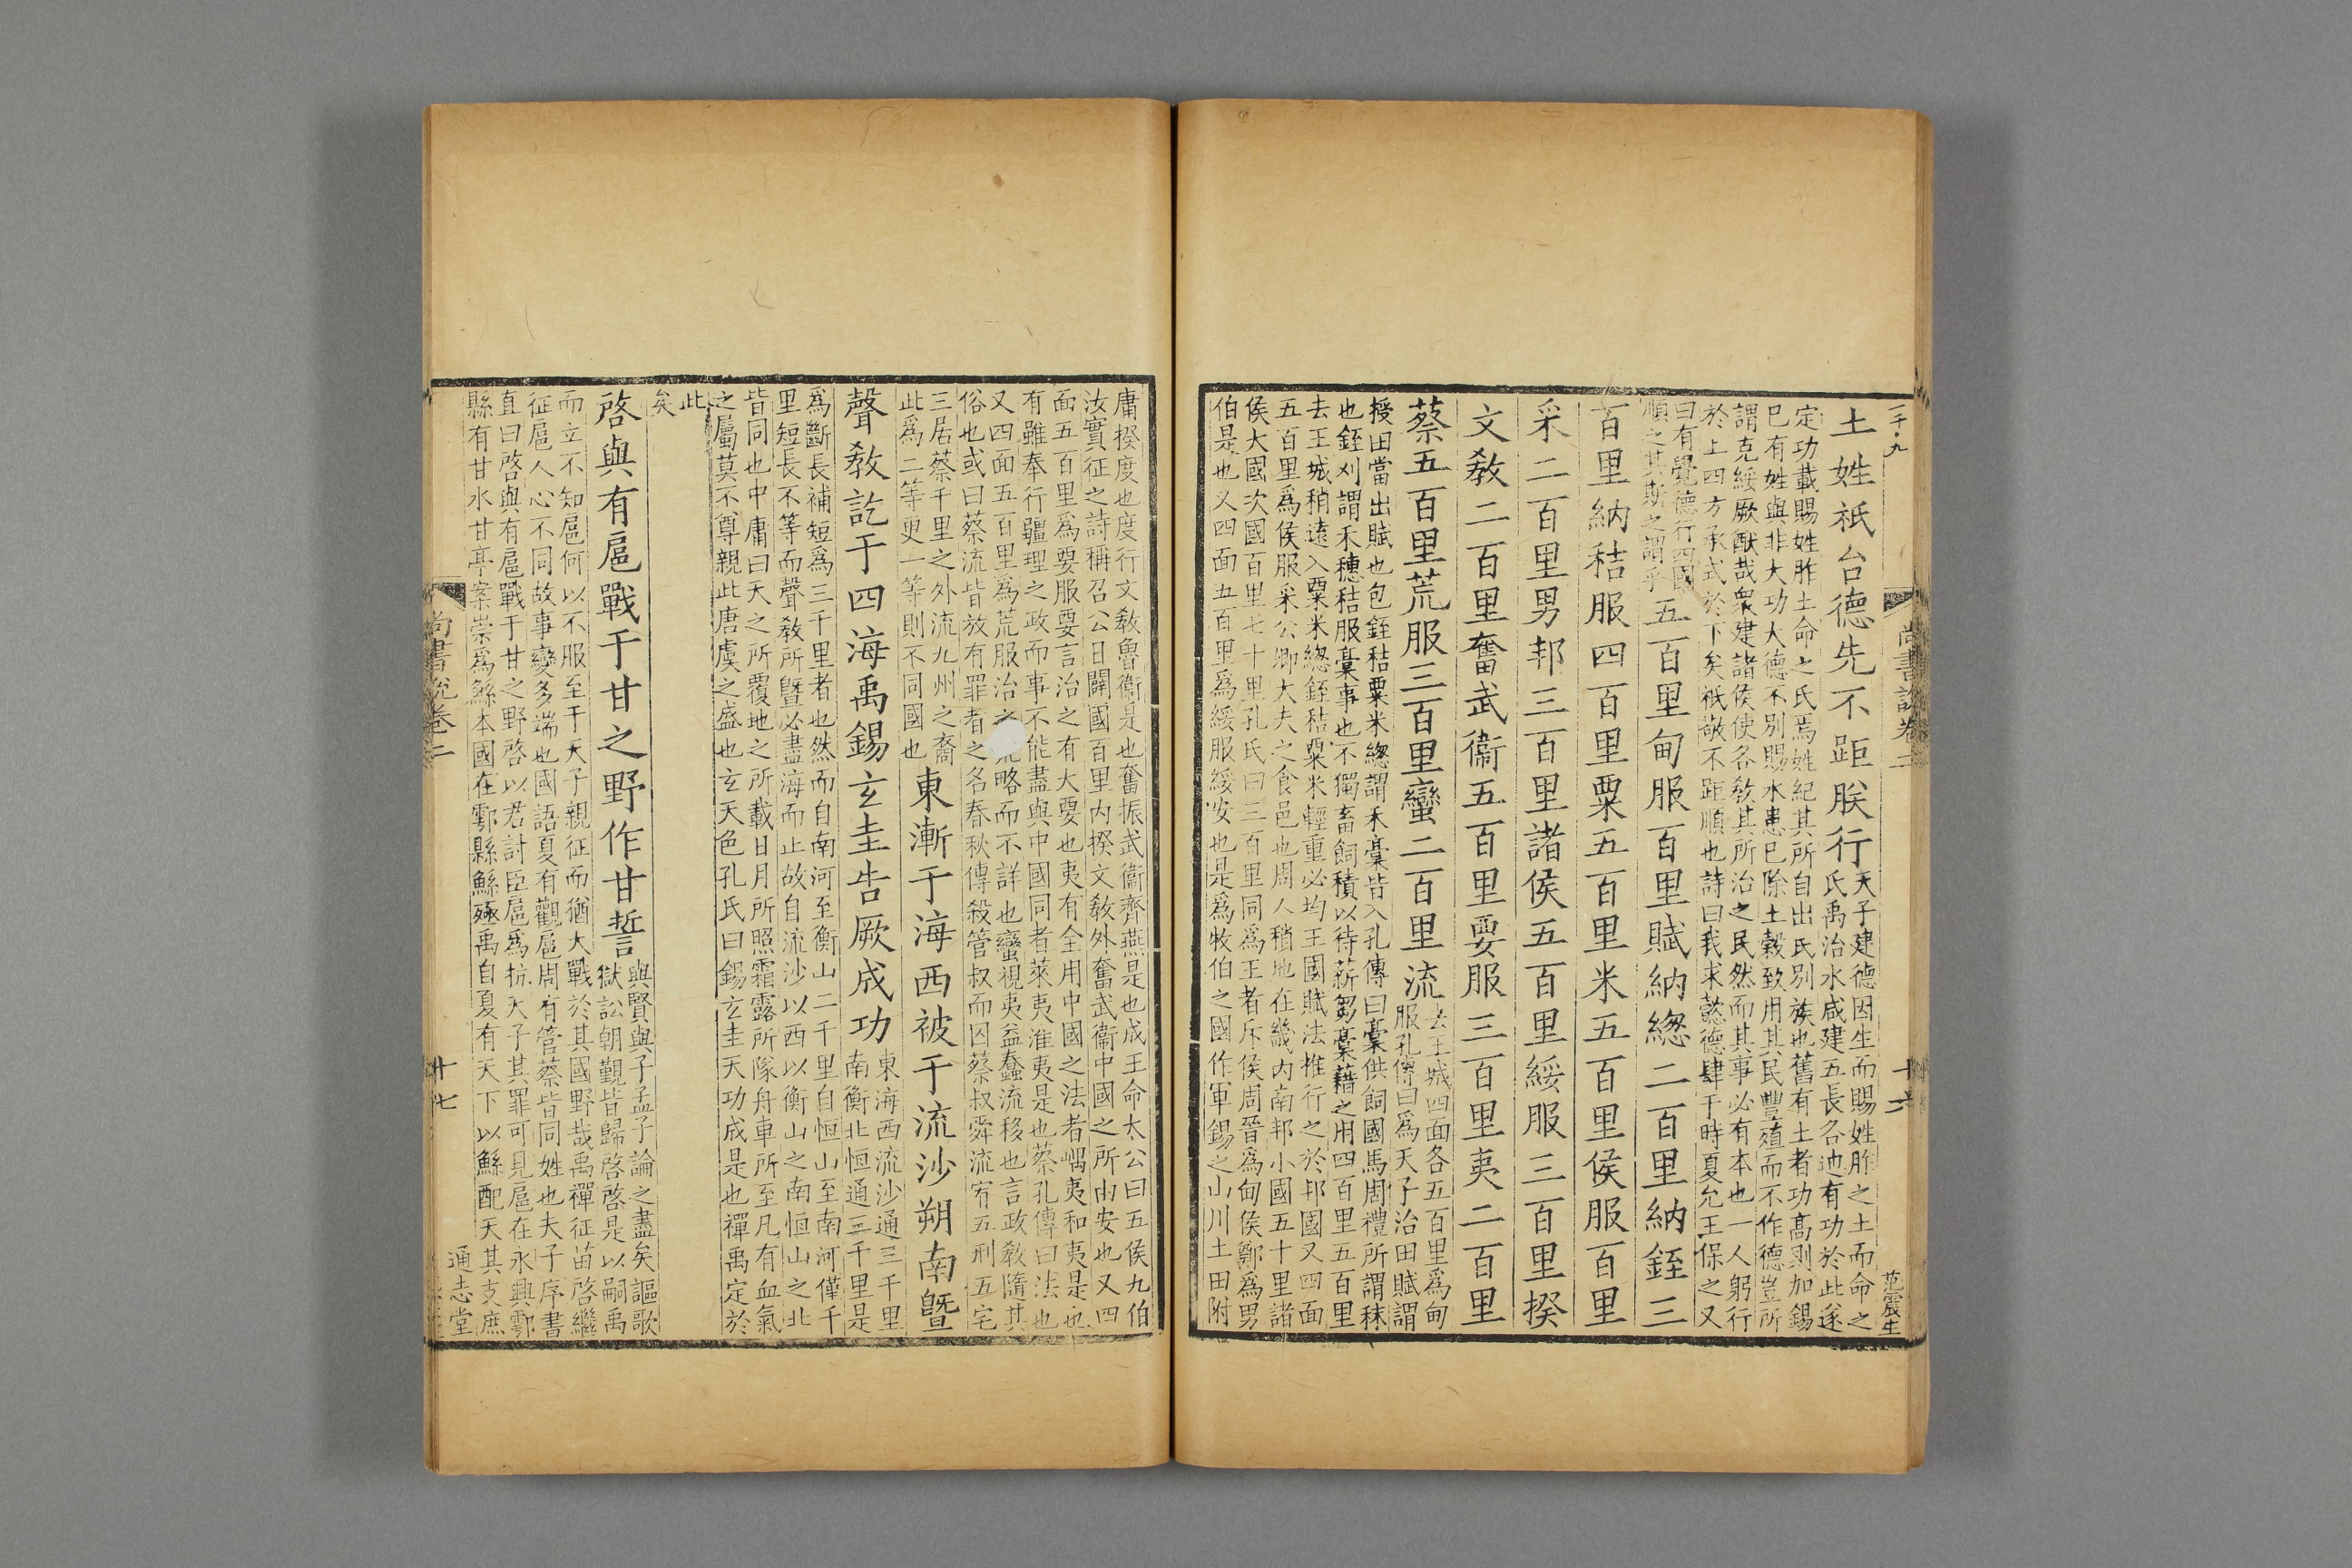 土姓祇台德先不距朕行天子建德因生而賜姓胙之土而命之
氏禹治水咸建五長各迪有功於此遂
定功載賜姓胙土命之氏焉姓紀其所自出氏别族也舊有土者功高則加錫
已有姓與非大功大德不别賜水患已除土穀致用其民豐殖而不作德豈所
謂克綏厥猷哉衆建諸侯使各敎其所治之民然而其事必有本也一人躬行
於上四方承式於下矣祇敬不距順也詩曰我求懿德肆于時夏允王保之又
曰有覺德行四國
順之其斯之謂乎五百里甸服百里賦納緫二百里納銍三
百里納秸服四百里粟五百里米五百里侯服百里
采二百里男邦三百里諸侯五百里綏服三百里揆
文敎二百里奮武衞五百里要服三百里夷二百里
蔡五百里荒服三百里蠻二百里流去王城四面各五百里爲甸
服孔傳曰爲天子治田賦謂
授田當出賦也包銍秸粟米緫謂禾藁皆入孔傳曰藁供飼國馬周禮所謂秣
也銍刈謂禾穗秸服藁事也不獨畜飼積以待薪芻藁藉之用四百里五百里
去王城稍遠入粟米緫銍秸粟米輕重必均王國賦法推行之於邦國又四面
五百里爲侯服采公卿大夫之食邑也周人稍地在畿内南邦小國五十里諸
侯大國次國百里七十里孔氏曰三百里同爲王者斥侯周晉爲甸侯鄭爲男
伯是也又四面五百里爲綏服綏安也是爲牧伯之國作軍錫之山川土田附
庸揆度也度行文敎魯衞是也奮振武衞齊燕是也成王命太公曰五侯九伯
汝實征之詩稱召公日闢國百里内揆文敎外奮武衞中國之所由安也又四
面五百里爲要服要言治之有大要也夷有全用中國之法者嵎夷和夷是也
有雖奉行疆理之政而事不能盡與中國同者萊夷淮夷是也蔡孔傳曰法也
又四面五百里爲荒服治之荒略而不詳也蠻視夷益蠢流移也言政敎隨其
俗也或曰蔡流皆放有罪者之名春秋傳殺管叔而囚蔡叔舜流宥五刑五宅
三居蔡千里之外流九州之裔
此爲二等更一等則不同國也東漸于海西被于流沙朔南曁
聲敎訖于四海禹錫玄圭告厥成功東海西流沙通三千里
南衡北恒通三千里是
爲斷長補短爲三千里者也然而自南河至衡山二千里自恒山至南河僅千
里短長不等而聲敎所曁必盡海而止故自流沙以西以衡山之南恒山之北
皆同也中庸曰天之所覆地之所載日月所照霜露所隊舟車所至凡有血氣
之屬莫不尊親此唐虞之盛也玄天色孔氏曰錫玄圭天功成是也禪禹定於
此
矣
啓與有扈戰于甘之野作甘誓與賢與子孟子論之盡矣謳歌
獄訟朝覲皆歸啓啓是以嗣禹
而立不知扈何以不服至于天子親征而猶大戰於其國野哉禹禪征苗啓繼
征扈人心不同故事變多端也國語夏有觀扈周有管蔡皆同姓也夫子序書
直曰啓與有扈戰于甘之野啓以君討臣扈爲抗天子其罪可見扈在永興鄠
縣有甘水甘亭案崇爲鯀本國在鄠縣鯀殛禹自夏有天下以鯀配天其支庶
尚書說卷二
十六
范震生
尚書說卷二
十七
通志堂